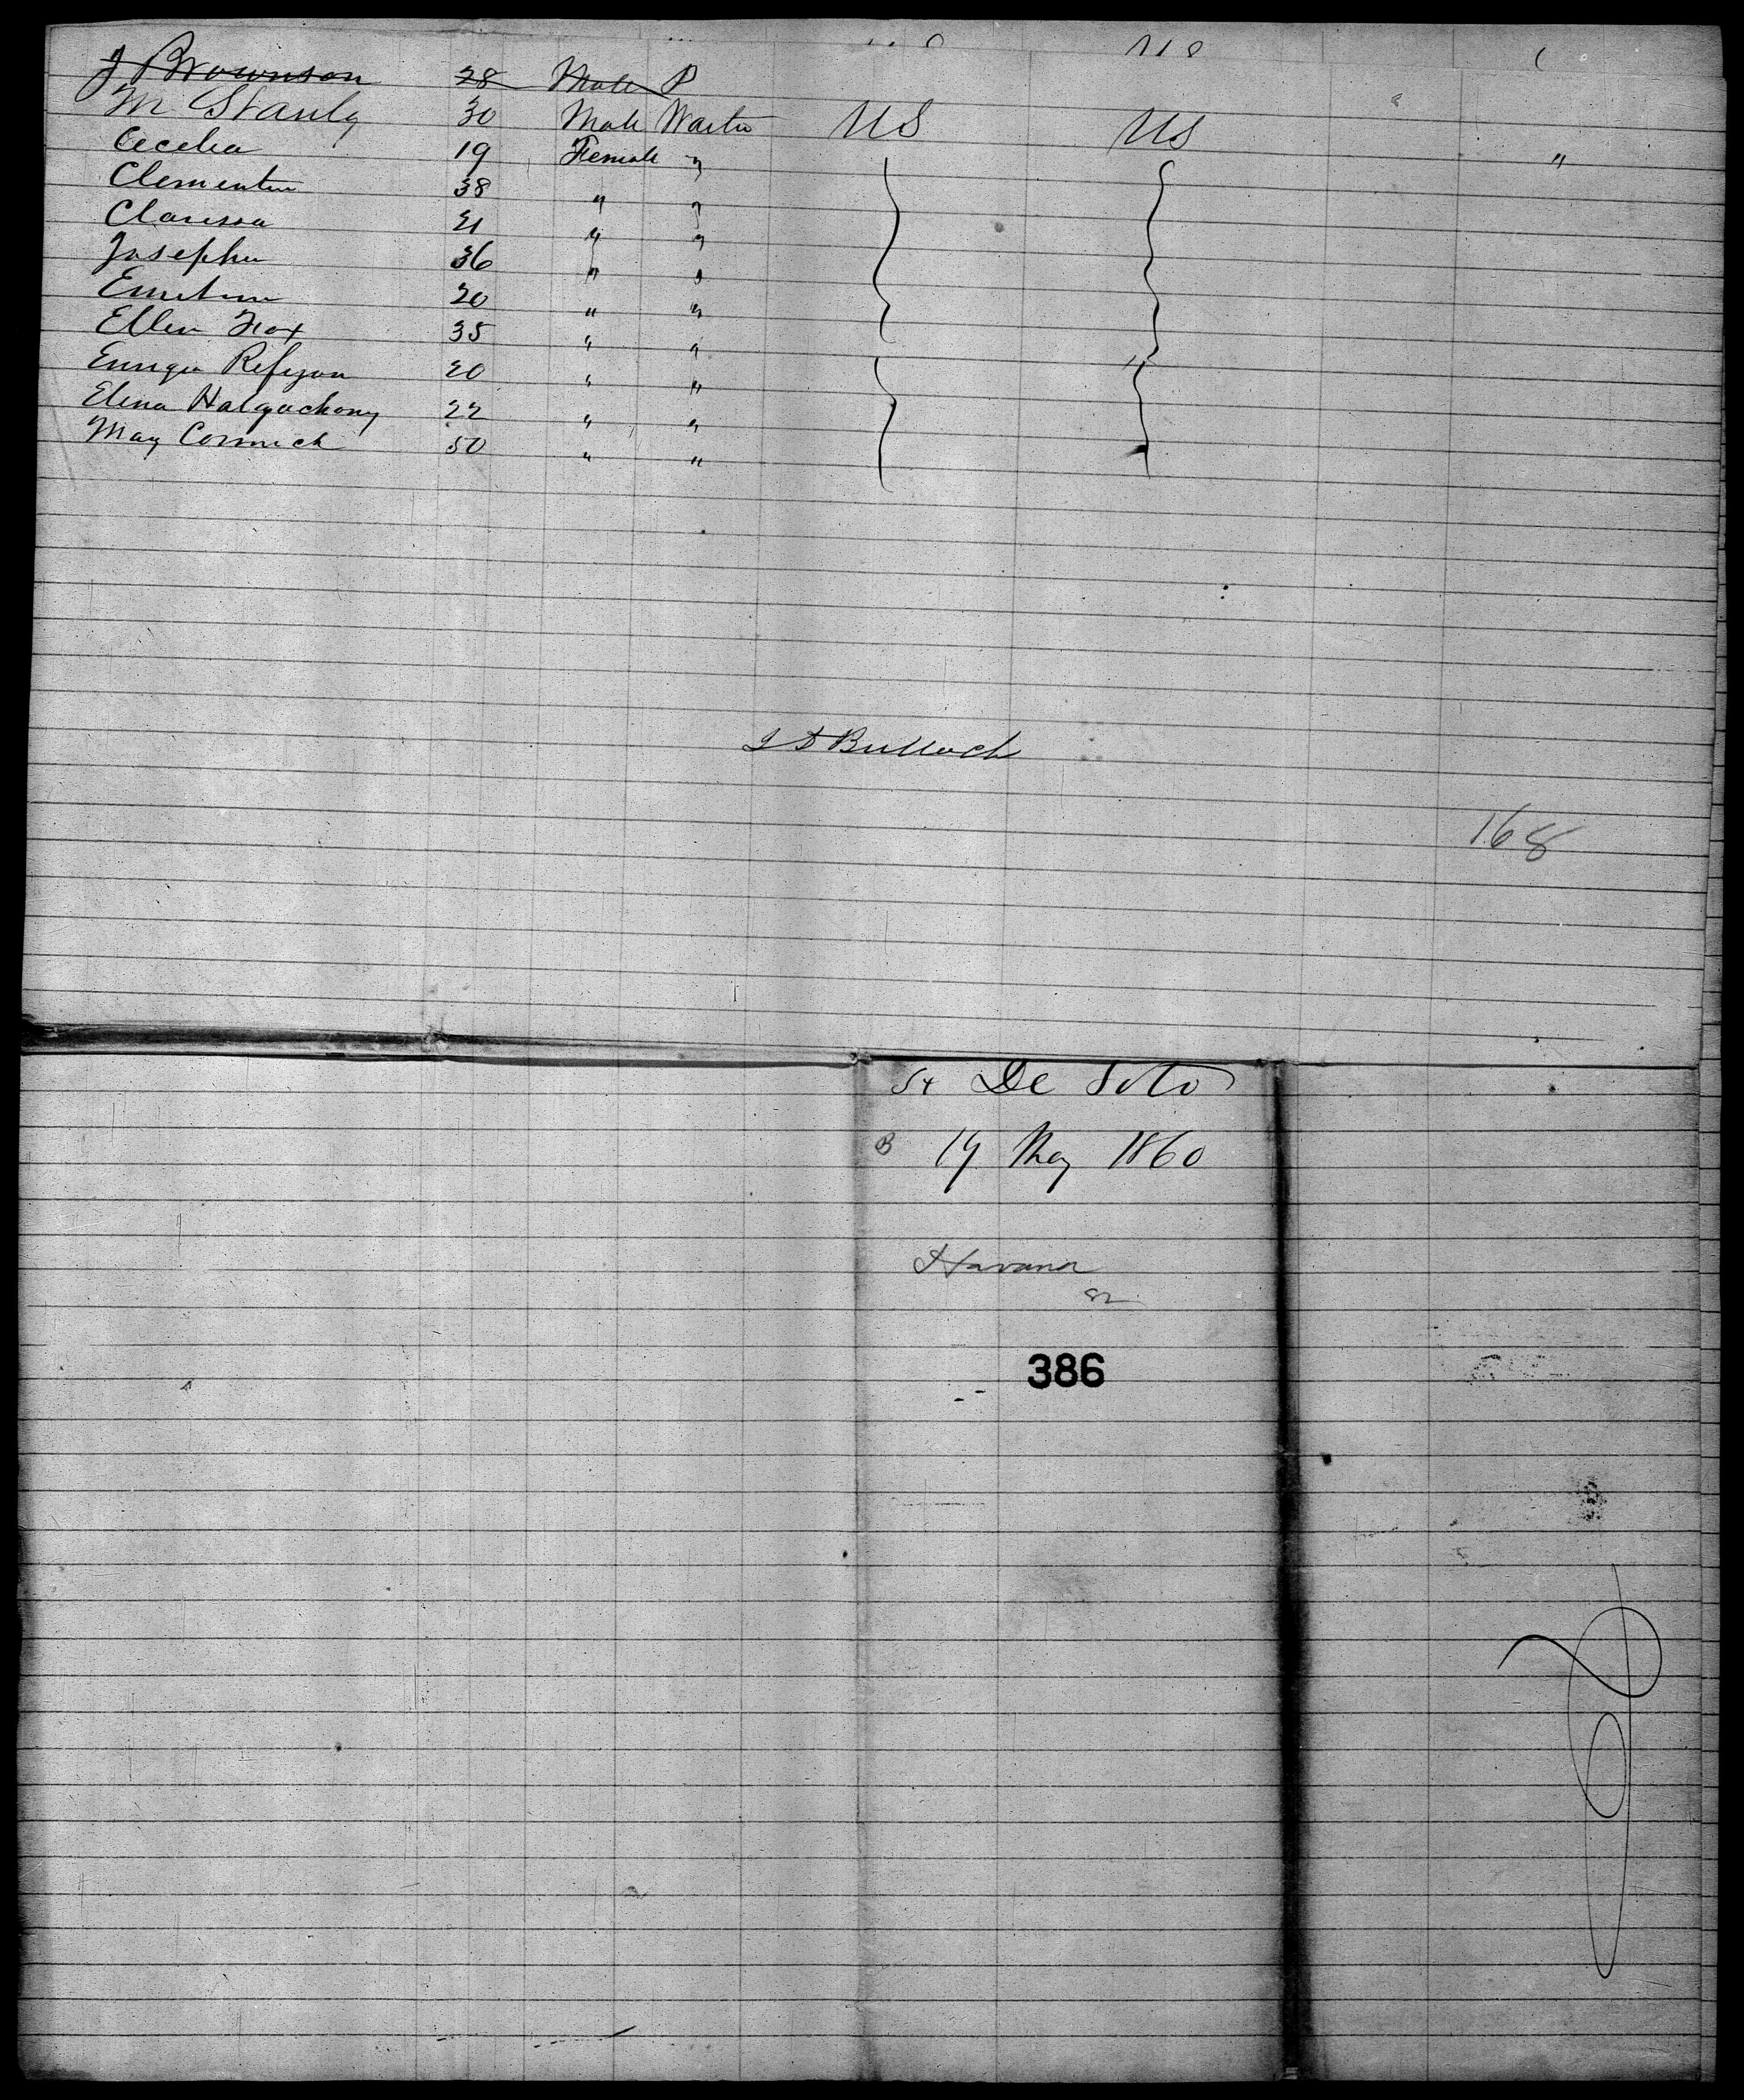 J Brownson 28 Male P
M Stanly 30 Male Waiter US US "
Cecelia 19 Female "
Clementin 38 " "
Clarissa 21 " "
Josephin 36 " "
20 " "
Ellen Fox 35 " "
20 " "
Elena 22 " "
May Cormick 50 " "
J D Bulloch
168
St De Soto
B 19 May 1860
Havana
82
386